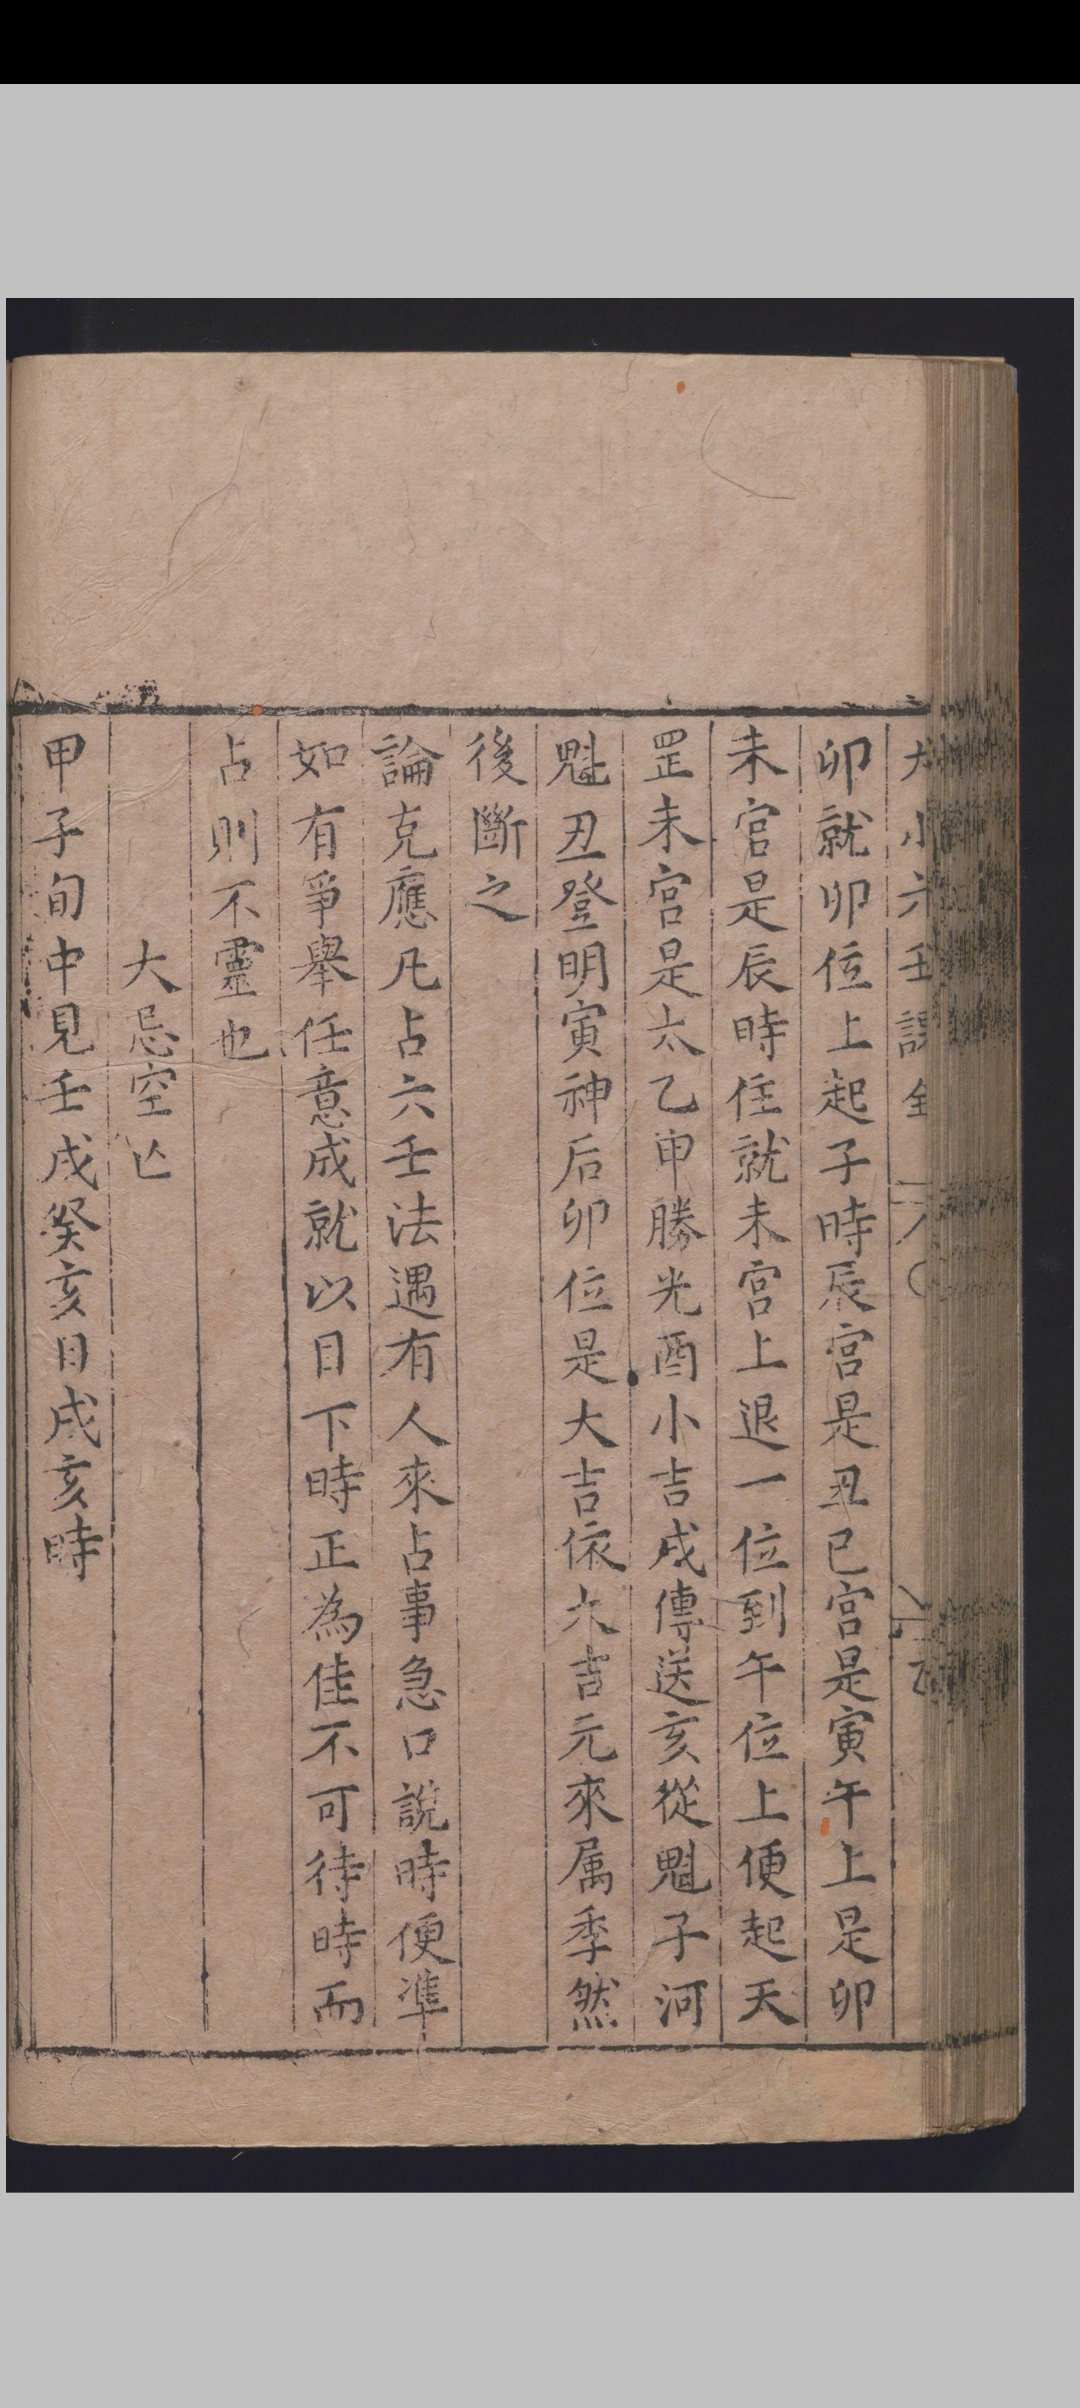 大小六壬課全
卯就卯位上起子時辰宮是丑巳宮是寅午上是卯
未宮是辰時住就未宮上退一位到午位上便起天
罡未宮是太乙申勝光酉小吉戌傳送亥從魁子河
魁丑登明寅神后卯位是大吉依大吉元來属季然
後斷之
論克應凡占六壬法遇有人來占事急口說時便準
如有爭舉任意成就以目下時正為佳不可待時而
占則不靈也
大忌空亡
甲子旬中見壬戌癸亥日戌亥時